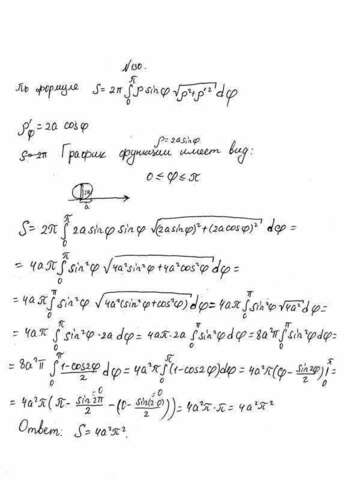 N 130.
По формуле S = 2π ∫₀^π ρ sinφ √(ρ² + ρ'²) dφ
ρ'φ = 2a cosφ
ρ = 2a sinφ
График функции имеет вид:
0 ≤ φ ≤ π
a
S = 2π ∫₀^π 2a sinφ sinφ √((2a sinφ)² + (2a cosφ)²) dφ =
= 4aπ ∫₀^π sin²φ √(4a² sin²φ + 4a² cos²φ) dφ =
= 4aπ ∫₀^π sin²φ √(4a²(sin²φ + cos²φ)) dφ = 4aπ ∫₀^π sin²φ √(4a²) dφ =
= 4aπ ∫₀^π sin²φ · 2a dφ = 4aπ · 2a ∫₀^π sin²φ dφ = 8a²π ∫₀^π sin²φ dφ =
= 8a²π ∫₀^π (1 - cos2φ)/2 dφ = 4a²π ∫₀^π (1 - cos2φ) dφ = 4a²π (φ - sin2φ/2) |₀^π =
= 4a²π (π - sin2π/2 - (0 - sin(2·0)/2)) = 4a²π · π = 4a²π²
Ответ: S = 4a²π².